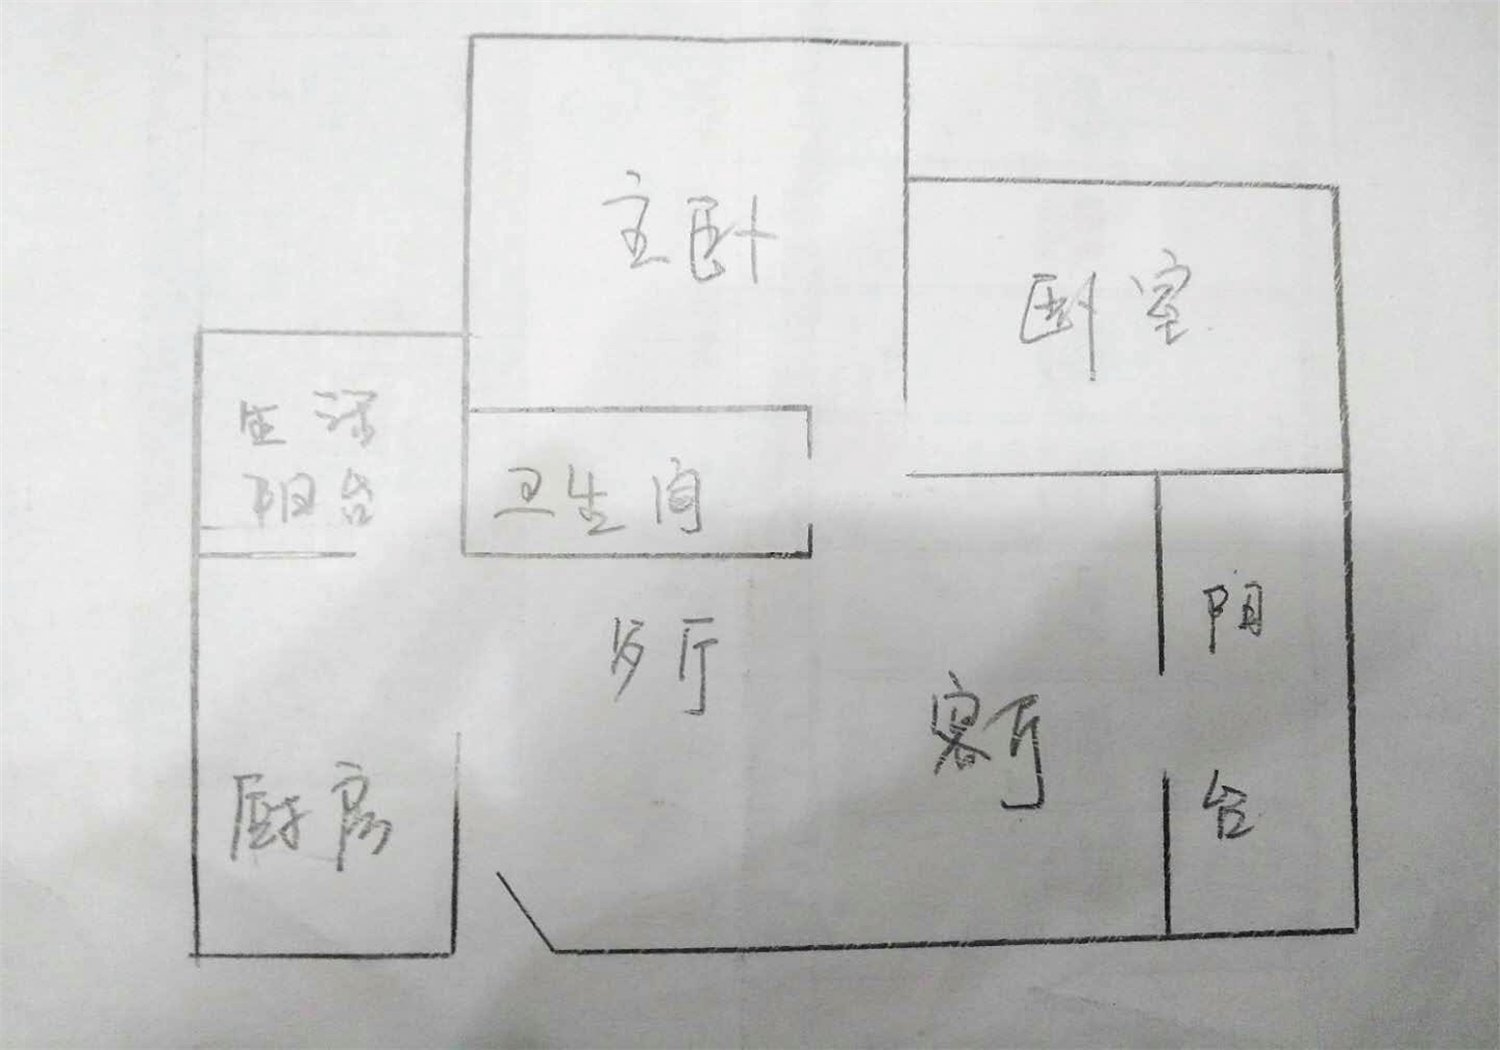 主卧
卧室
生活
阳台
卫生间
厅
阳
客厅
厨房
台